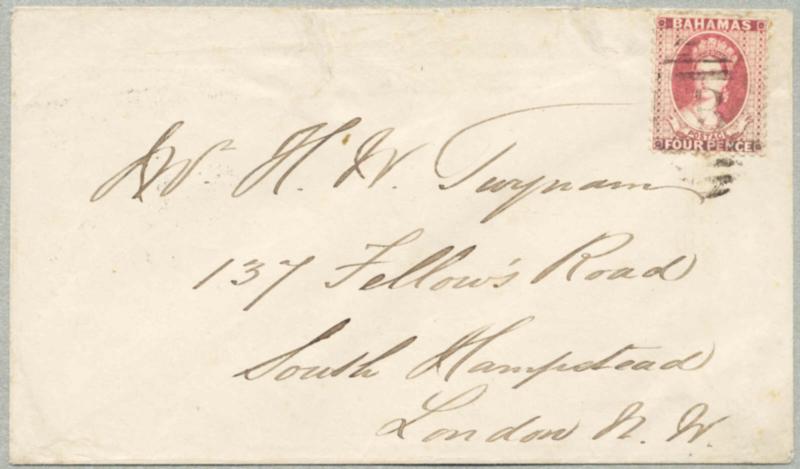 BAHAMAS
POSTAGE
FOUR PENCE
Mr. H. W. Twynam
137 Fellow's Road
South Hampstead
London N. W.